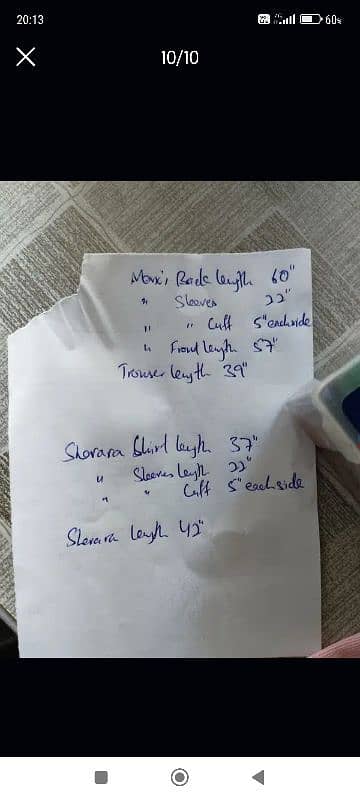 20:13
60%
10/10
Maxi Back length 60"
" Sleeves 22"
" " Cuff 5" each side
" Front length 57"
Trouser length 39"
Sharara Shirt length 37"
" Sleeves length 22"
" " Cuff 5" each side
Sharara length 42"